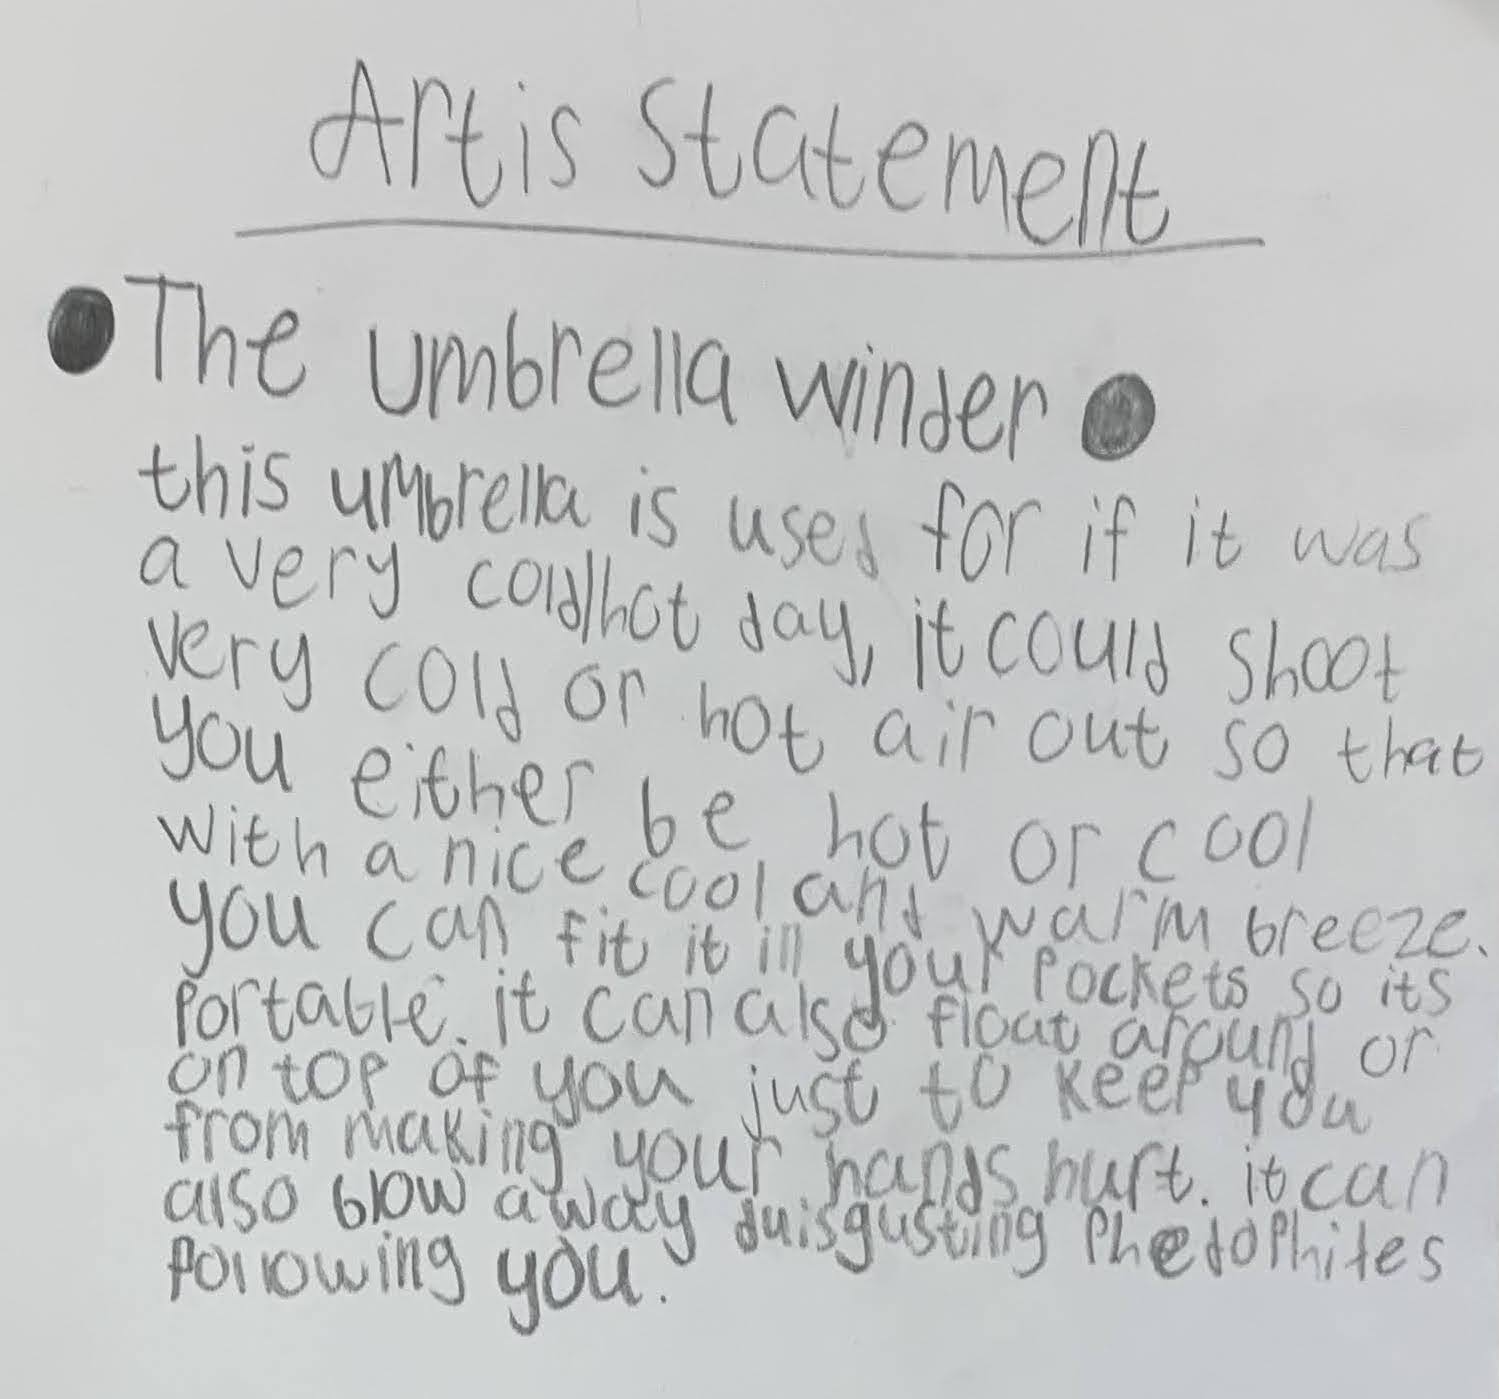 Artis Statement
● The umbrella winder ●
this umbrella is used for if it was
a very cold/hot day, it could shoot
very cold or hot air out so that
you either be hot or cool
with a nice cool and warm breeze.
you can fit it in your pockets so its
portable. it can also float around or
on top of you just to keep you
from making your hands hurt. it can
also blow away duisgusting Phedophites
following you.